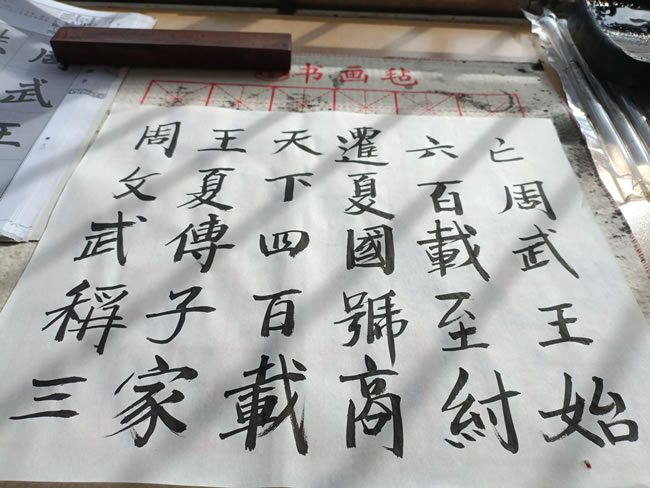 书画毡
周文武稱三
王夏傳子家
天下四百載
遷夏國號商
六百載至紂
亡周武王始
周武王